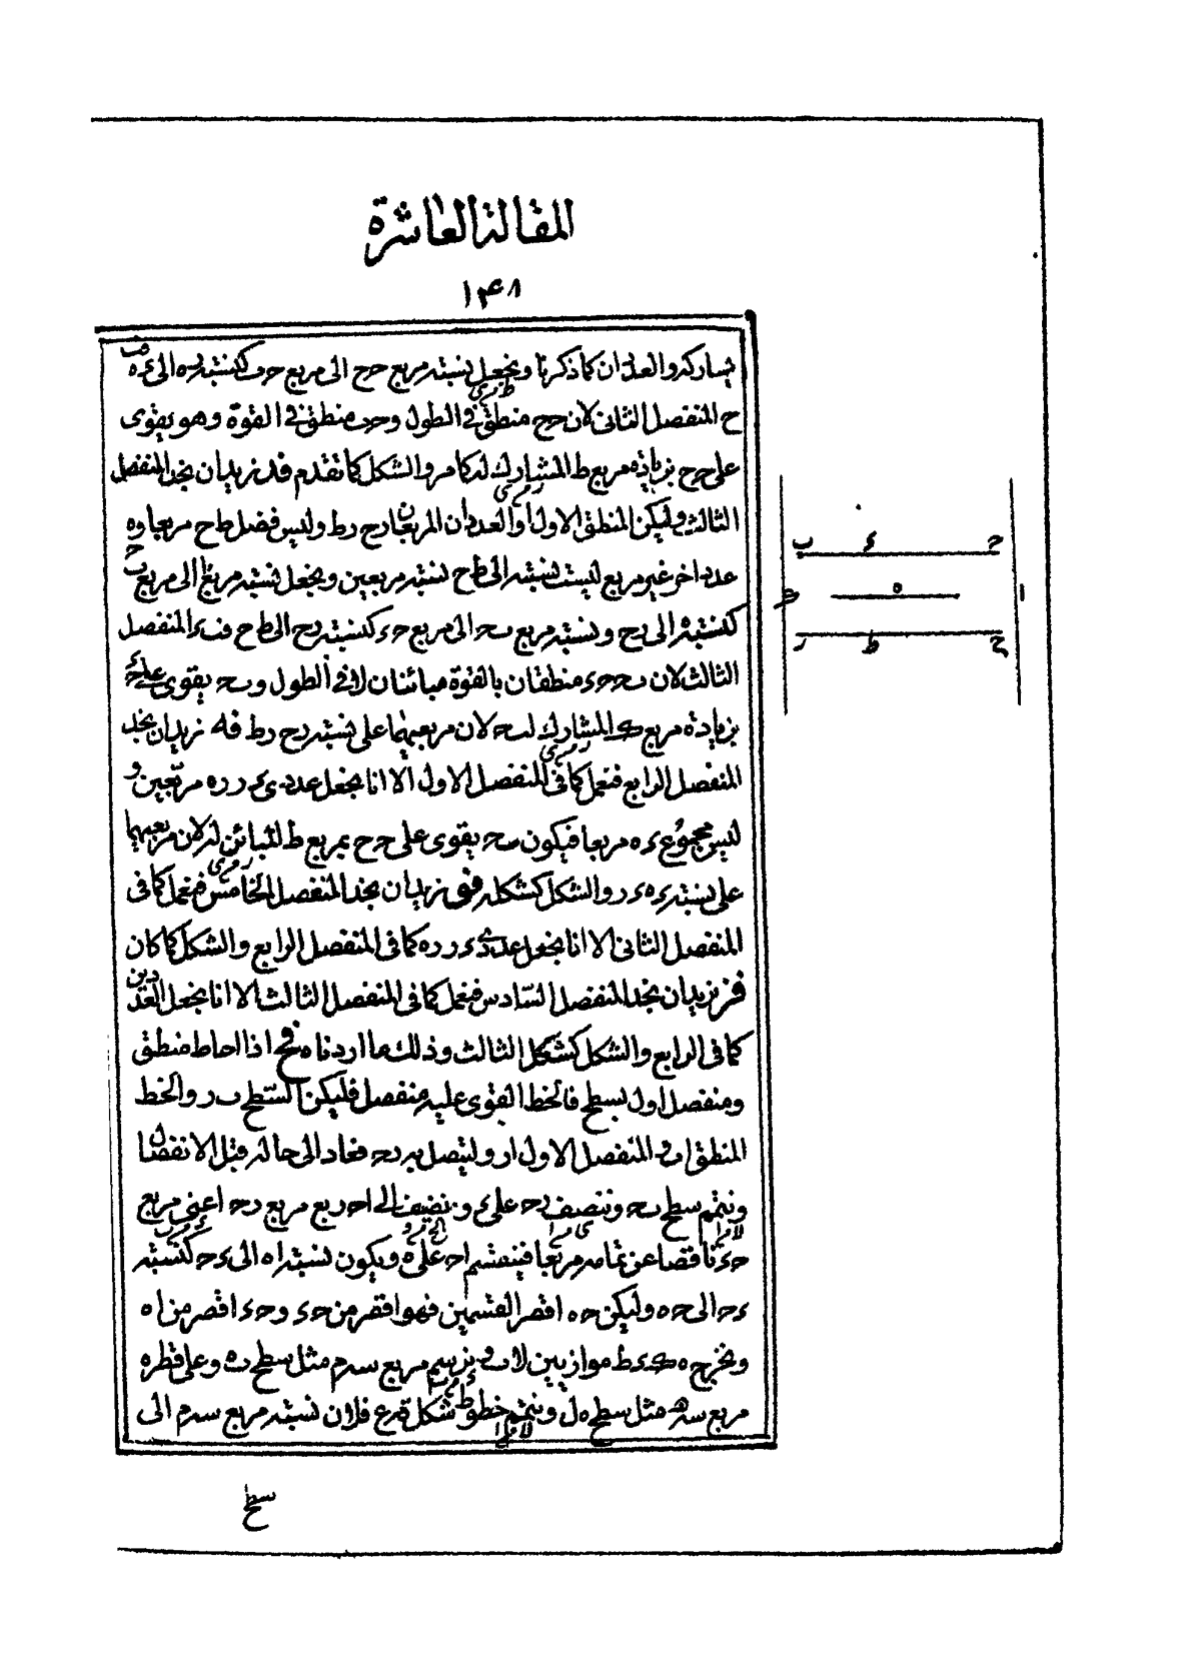 المقالة العاشرة
١٤٨
يشاركه والعددان كما ذكرنا ونجعل نسبة مربع حح الى مربع حب كنسبة ره الى ءه
ح المنفصل الثانى لان حح منطق فى الطول وحب منطق فى القوة وهو يقوى
على حح بزيادة مربع ط المشارك له كما مر والشكل كما تقدم فد نريد ان نجد المنفصل
الثالث وليكن المنطق الاول ا والعددان المربعان رح رط وليس فضل طح مربعا وه
عدد اخر غير مربع ليست نسبته الى طح نسبة مربعين ونجعل نسبة مربع ا الى مربع ب ح
كنسبة ه الى رح ونسبة مربع ب ح الى مربع حء كنسبة رح الى طح فب ء المنفصل
الثالث لان ب ح حء منطقان بالقوة مبائنان لا فى الطول و ب ح يقوى على ء ح
بزيادة مربع ك المشارك ل ب ح لان مربعيهما على نسبة رح رط فه نريد ان نجد
المنفصل الرابع فنعمل كما فى المنفصل الاول الا انا نجعل عددى ء ر ره مربعين و
ليس مجموع ءه مربعا فيكون ب ح يقوى على حح بمربع ط المبائن له لان مربعيهما
على نسبة ءه ء ر والشكل كشكله فو نريد ان نجد المنفصل الخامس فنعمل كما فى
المنفصل الثانى الا انا نجعل عددى ء ر ره كما فى المنفصل الرابع والشكل كما كان
فز نريد ان نجد المنفصل السادس فنعمل كما فى المنفصل الثالث الا انا نجعل العددين
كما فى الرابع والشكل كشكل الثالث وذلك ما اردناه فح اذا احاط منطق
ومنفصل اول بسطح فالخط القوى عليه منفصل فليكن السطح ب ر والخط
المنطق ا ب والمنفصل الاول ا ر وليتصل به رح فعاد الى حاله قبل الانفصال
ونتمم سطح ب ح وننصف رح على ء ونضيف الى اح ربع مربع رح اعنى مربع
حء ناقصا عن تمامه مربعا فينقسم اح على ه ويكون نسبة اه الى ءح كنسبة
ءح الى حه وليكن حه اقصر القسمين فهو اقصر من حء وحء اقصر من اه
ونخرج ه ك ء ط موازيين لا ب ونرسم مربع س م مثل سطح ب ه وعلى قطره
مربع س ه مثل سطح ه ل ونتمم خطوط شكل ق ع فلان نسبة مربع س م الى
سطح
ب ء ح
ه
ك ا
ر ط ح